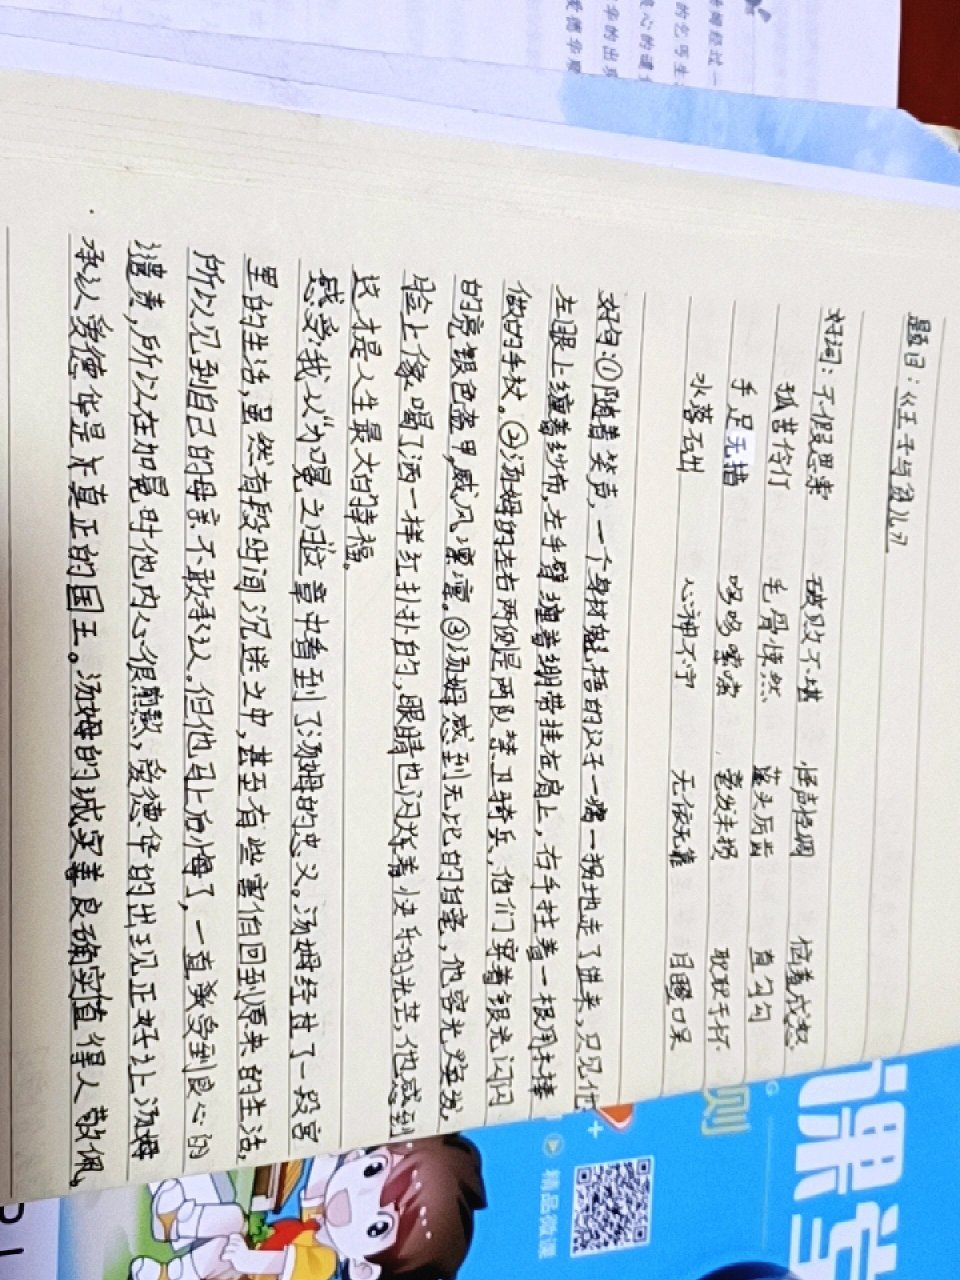 题目：《王子与贫儿》
好词：不假思索 破败不堪 怪声怪调 恼羞成怒
孤苦伶仃 毛骨悚然 蓬头历齿 直勾勾
手足无措 哆哆嗦嗦 耿耿于怀
水落石出 心神不宁 无依无靠 目瞪口呆
好句：①随着笑声，一个身材魁梧的汉子一瘸一拐地走了进来，只见他
左眼上缠着纱布，左手臂缠着绷带挂在肩上，右手拄着一根用木棒
做的手杖。②汤姆的左右两侧是两队禁卫骑兵，他们穿着银光闪闪
的亮银色盔甲，威风凛凛。③汤姆感到无比的自豪，他容光焕发
脸上像喝了酒一样红扑扑的，眼睛也闪烁着快乐的光芒，他感到
这才是人生最大的幸福。
感受：我从“加冕之日”这章中看到了汤姆的忠义。汤姆经过了一段宫
里的生活，虽然有段时间沉迷之中，甚至有些害怕回到原来的生活，
所以见到自己的母亲不敢承认。但他马上后悔了，一直受到良心的
谴责，所以在加冕时他内心很煎熬，爱德华的出现正好让汤姆
承认爱德华是真正的国王。汤姆的诚实善良确实值得人敬佩。
课堂
则
精品微课